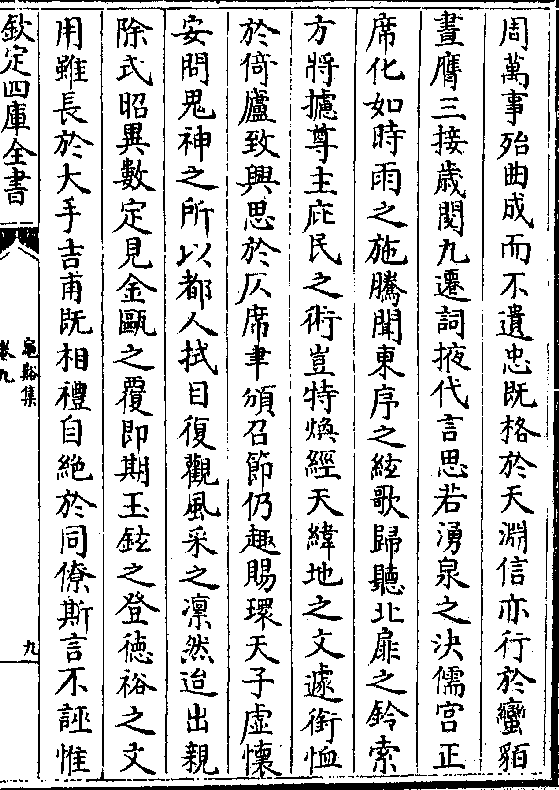 周萬事殆曲成而不遺忠既格於天淵信亦行於蠻貊
晝膺三接歳閱九遷詞掖代言思若湧泉之決儒宫正
席化如時雨之施騰聞東序之絃歌歸聽北扉之鈴索
方將攄尊主庇民之術豈特煥經天緯地之文遽銜恤
於倚廬致興思於仄席聿頒召節仍趣賜環天子虚懷
安問鬼神之所以都人拭目復觀風采之凛然迨出親
除式昭異數定見金甌之覆即期玉鉉之登徳裕之文
用雖長於大手吉甫既相禮自絶於同僚斯言不誣惟
欽定四庫全書
龜谿集
卷九
九